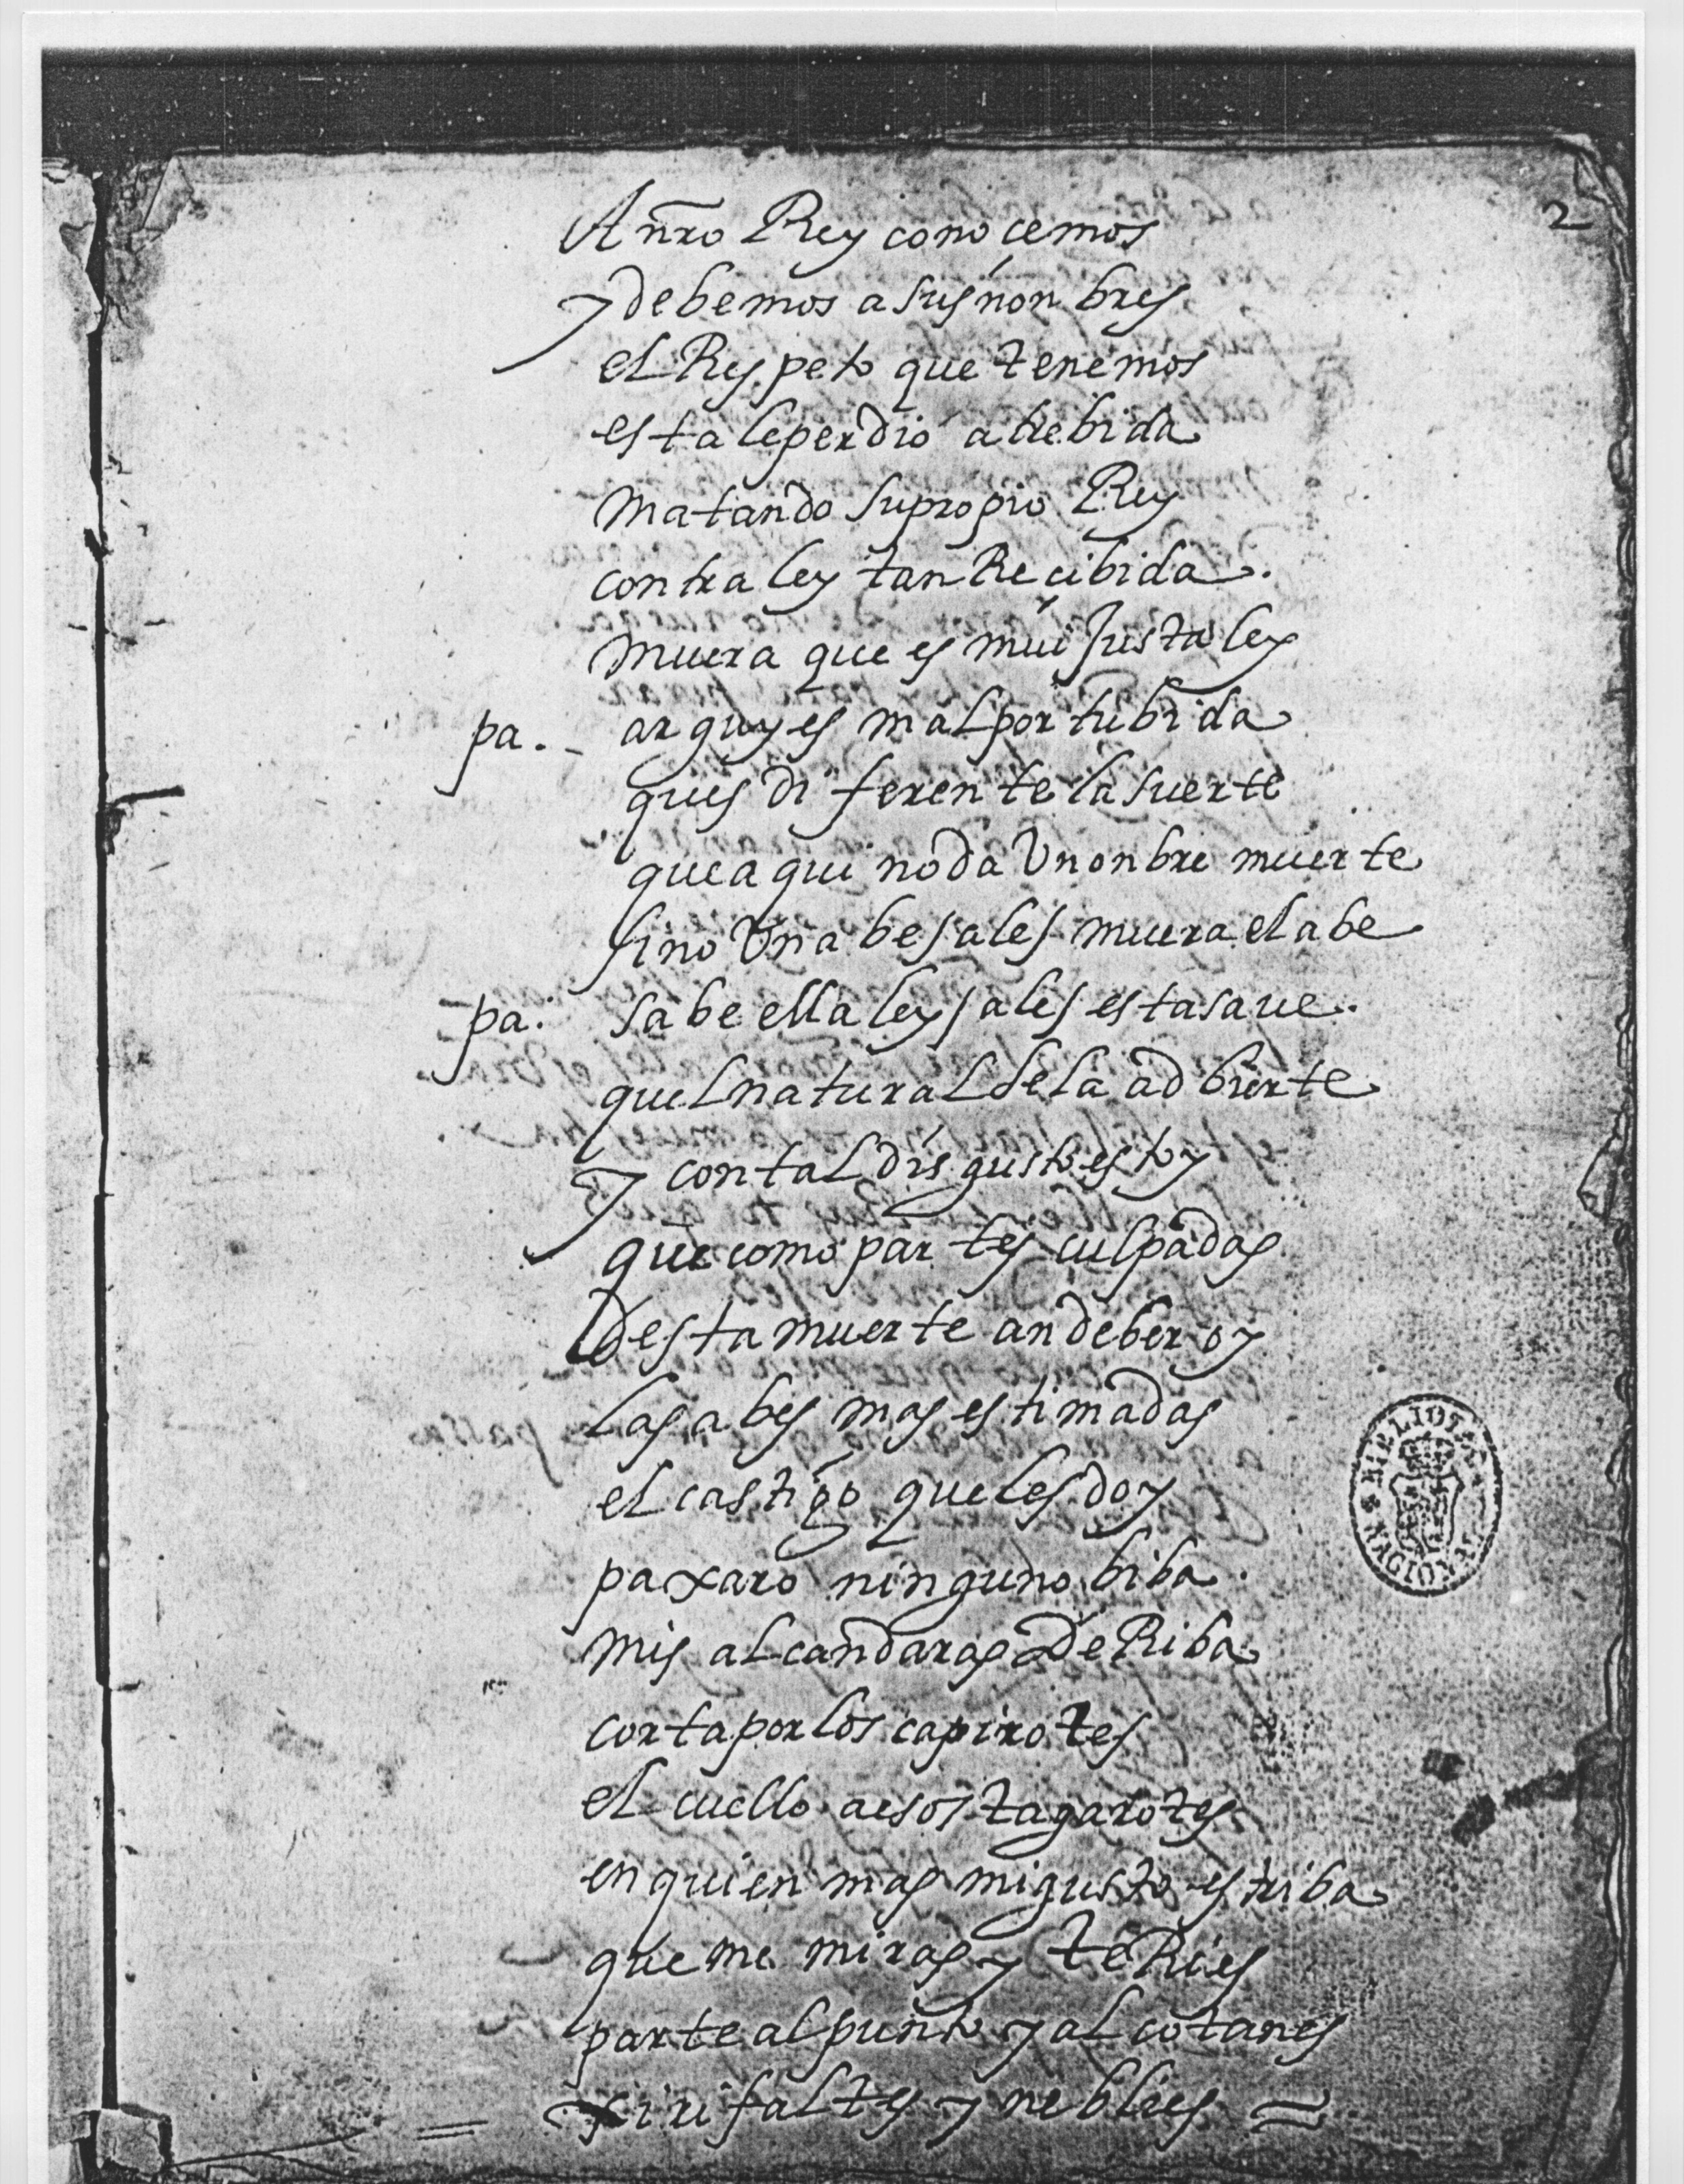 2
A nr̃o Rey conocemos
y debemos a sus nonbres
el Respeto que tenemos
esta le perdio atrebida
matando su propio Rey
contra ley tan Recibida.
muera que es mui justa ley
pa. - arguyes mal por tu bida
ques diferente la suerte
que aqui no da Un onbre muerte
sino Una bes ales muera el abe
pa. sabe ella ley sales esta saue.
quel natural se la adbierte
y con tal disgusto estoy
que como partes culpadas
desta muerte an de ber oy
las abes mas estimadas
el castigo que les doy
paxaro ninguno biba.
mis alcandaras deRiba
corta por los capirotes
el cuello a esos tagarotes
en quien mas mi gusto estriba
que me miras y te Ries
parte al punto y alcotanes
xirifaltes y neblies
BIBLIOTECA NACIONAL